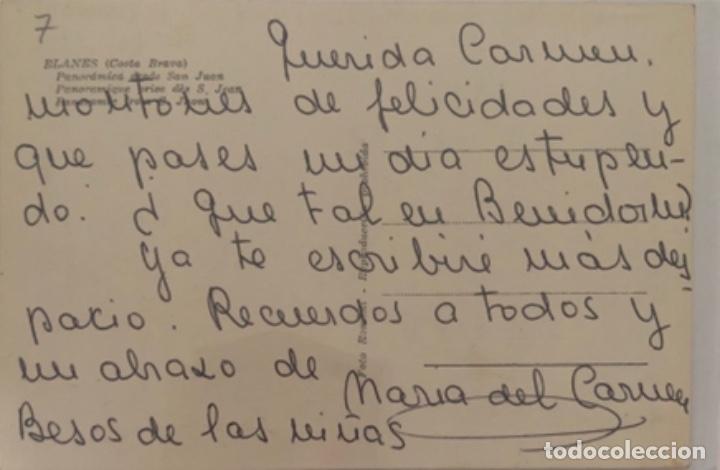 7
BLANES (Costa Brava)
Panorámica desde San Juan
Panoramique prise dès S. Jean
Panorama from S. Juan
Querida Carmen.
montones de felicidades y
que pases un dia estupen-
do. ¿que tal en Benidorm?
ya te escribiré más des
pacio. Recuerdos a todos y
un abrazo de
Maria del Carmen
Besos de las niñas
Foto
todocoleccion.net